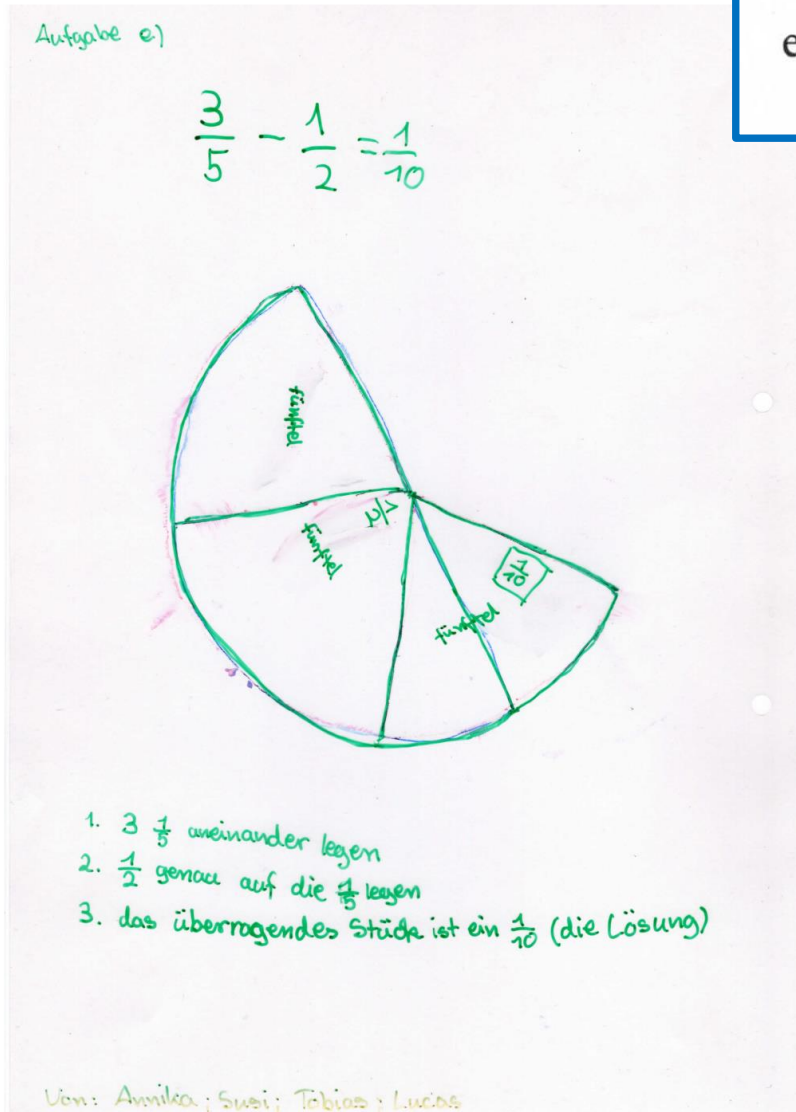 Aufgabe e)
e
3/5 - 1/2 = 1/10
fünftel
1/2
fünftel
1/10
fünftel
1. 3 1/5 aneinander legen
2. 1/2 genau auf die 1/5 legen
3. das überragendes Stück ist ein 1/10 (die Lösung)
Von: Annika; Susi; Tobias; Lucas